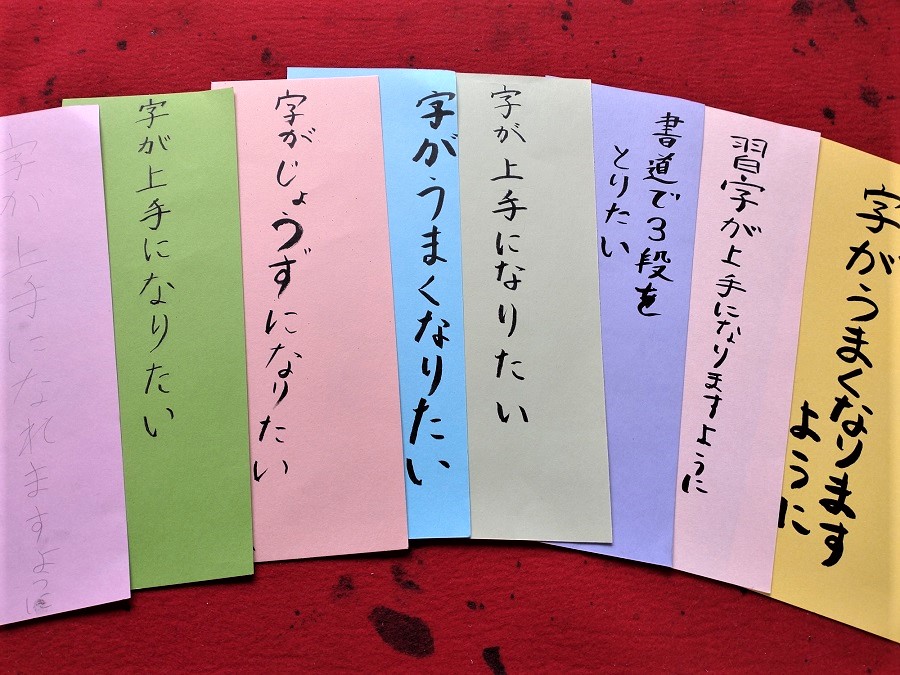 字がうまくなります
ように
習字が上手になりますように
書道で3段を
とりたい
字が上手になりたい
字がうまくなりたい
字がじょうずになりたい
字が上手になりたい
字が上手になれますように